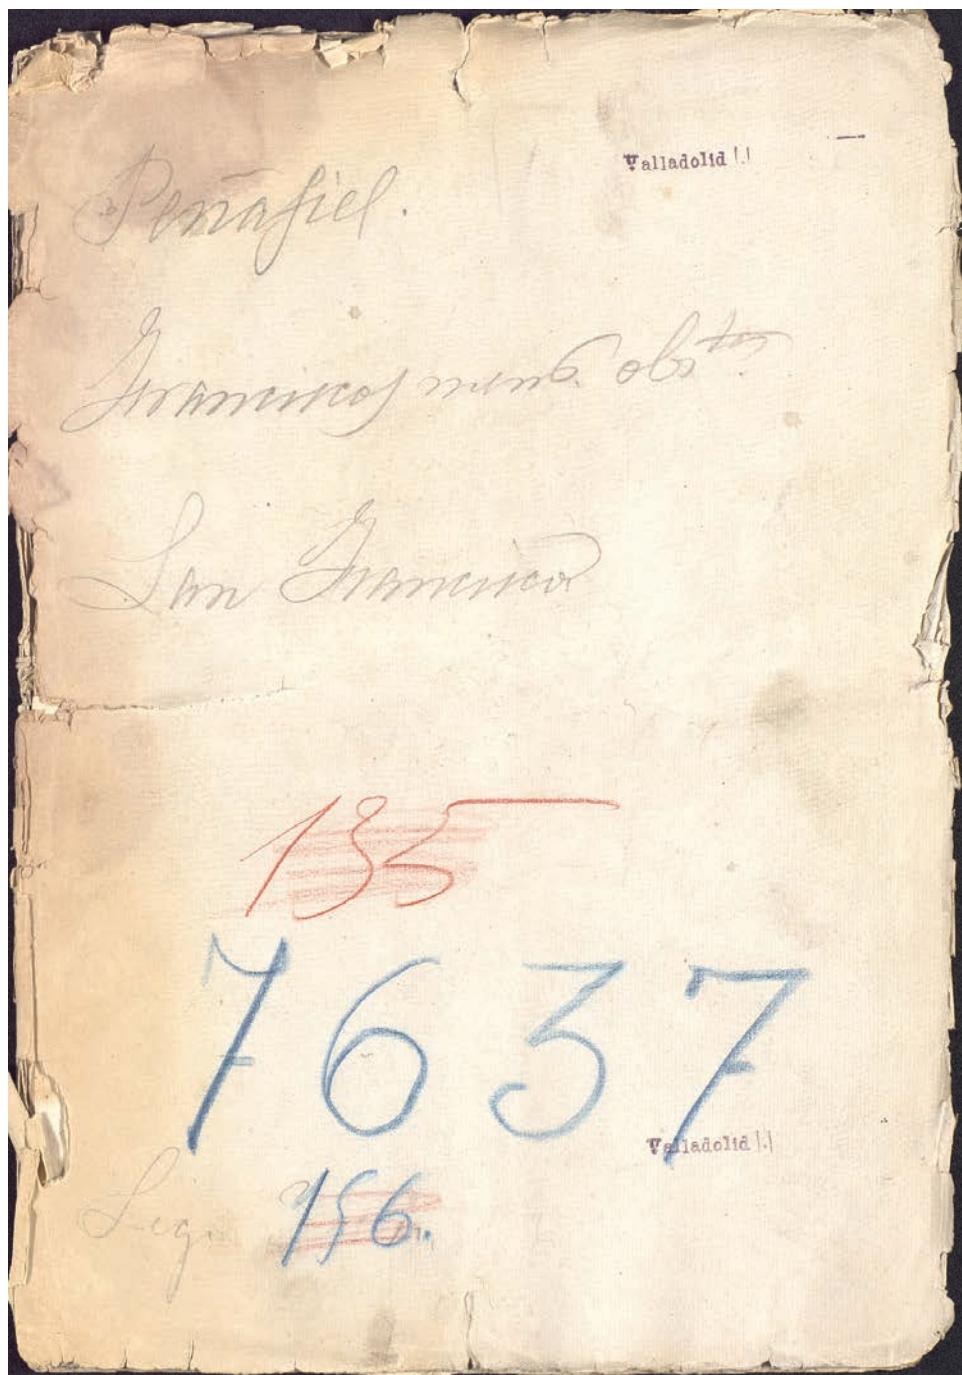 Valladolid
Peñafiel.
Franciscos men.s obs.tes
San Francisco
135
7637
Valladolid
Leg. 156.